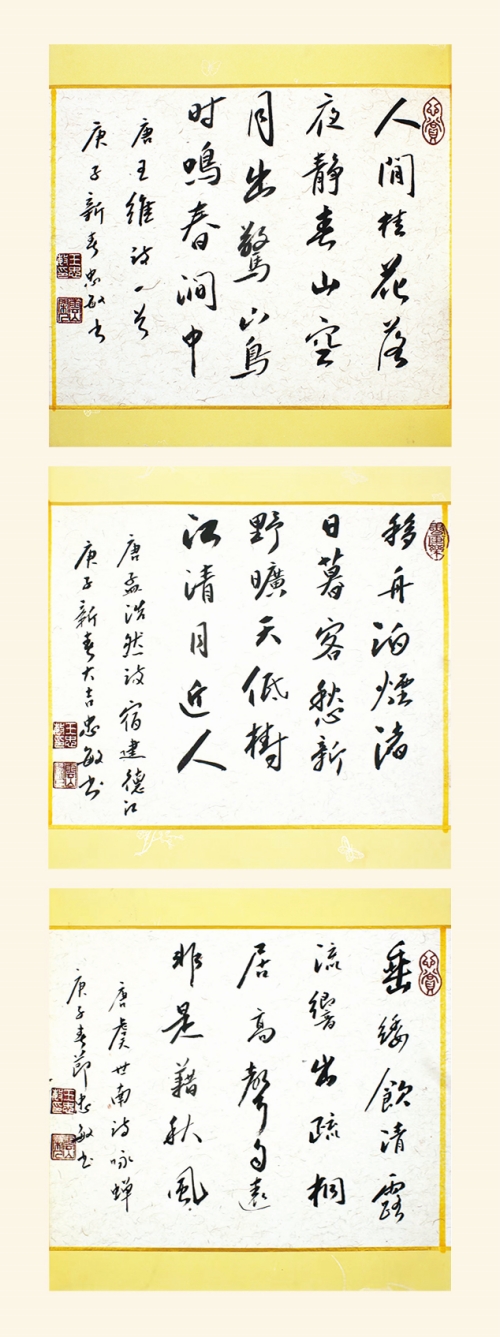 人閒桂花落
夜靜春山空
月出驚山鳥
时鳴春澗中
唐王維詩一首
庚子新春忠敏书
移舟泊煙渚
日暮客愁新
野曠天低樹
江清月近人
唐孟浩然詩宿建德江
庚子新春大吉忠敏书
垂緌飲清露
流響出疏桐
居高聲自遠
非是藉秋風
唐虞世南诗咏蝉
庚子春節忠敏书